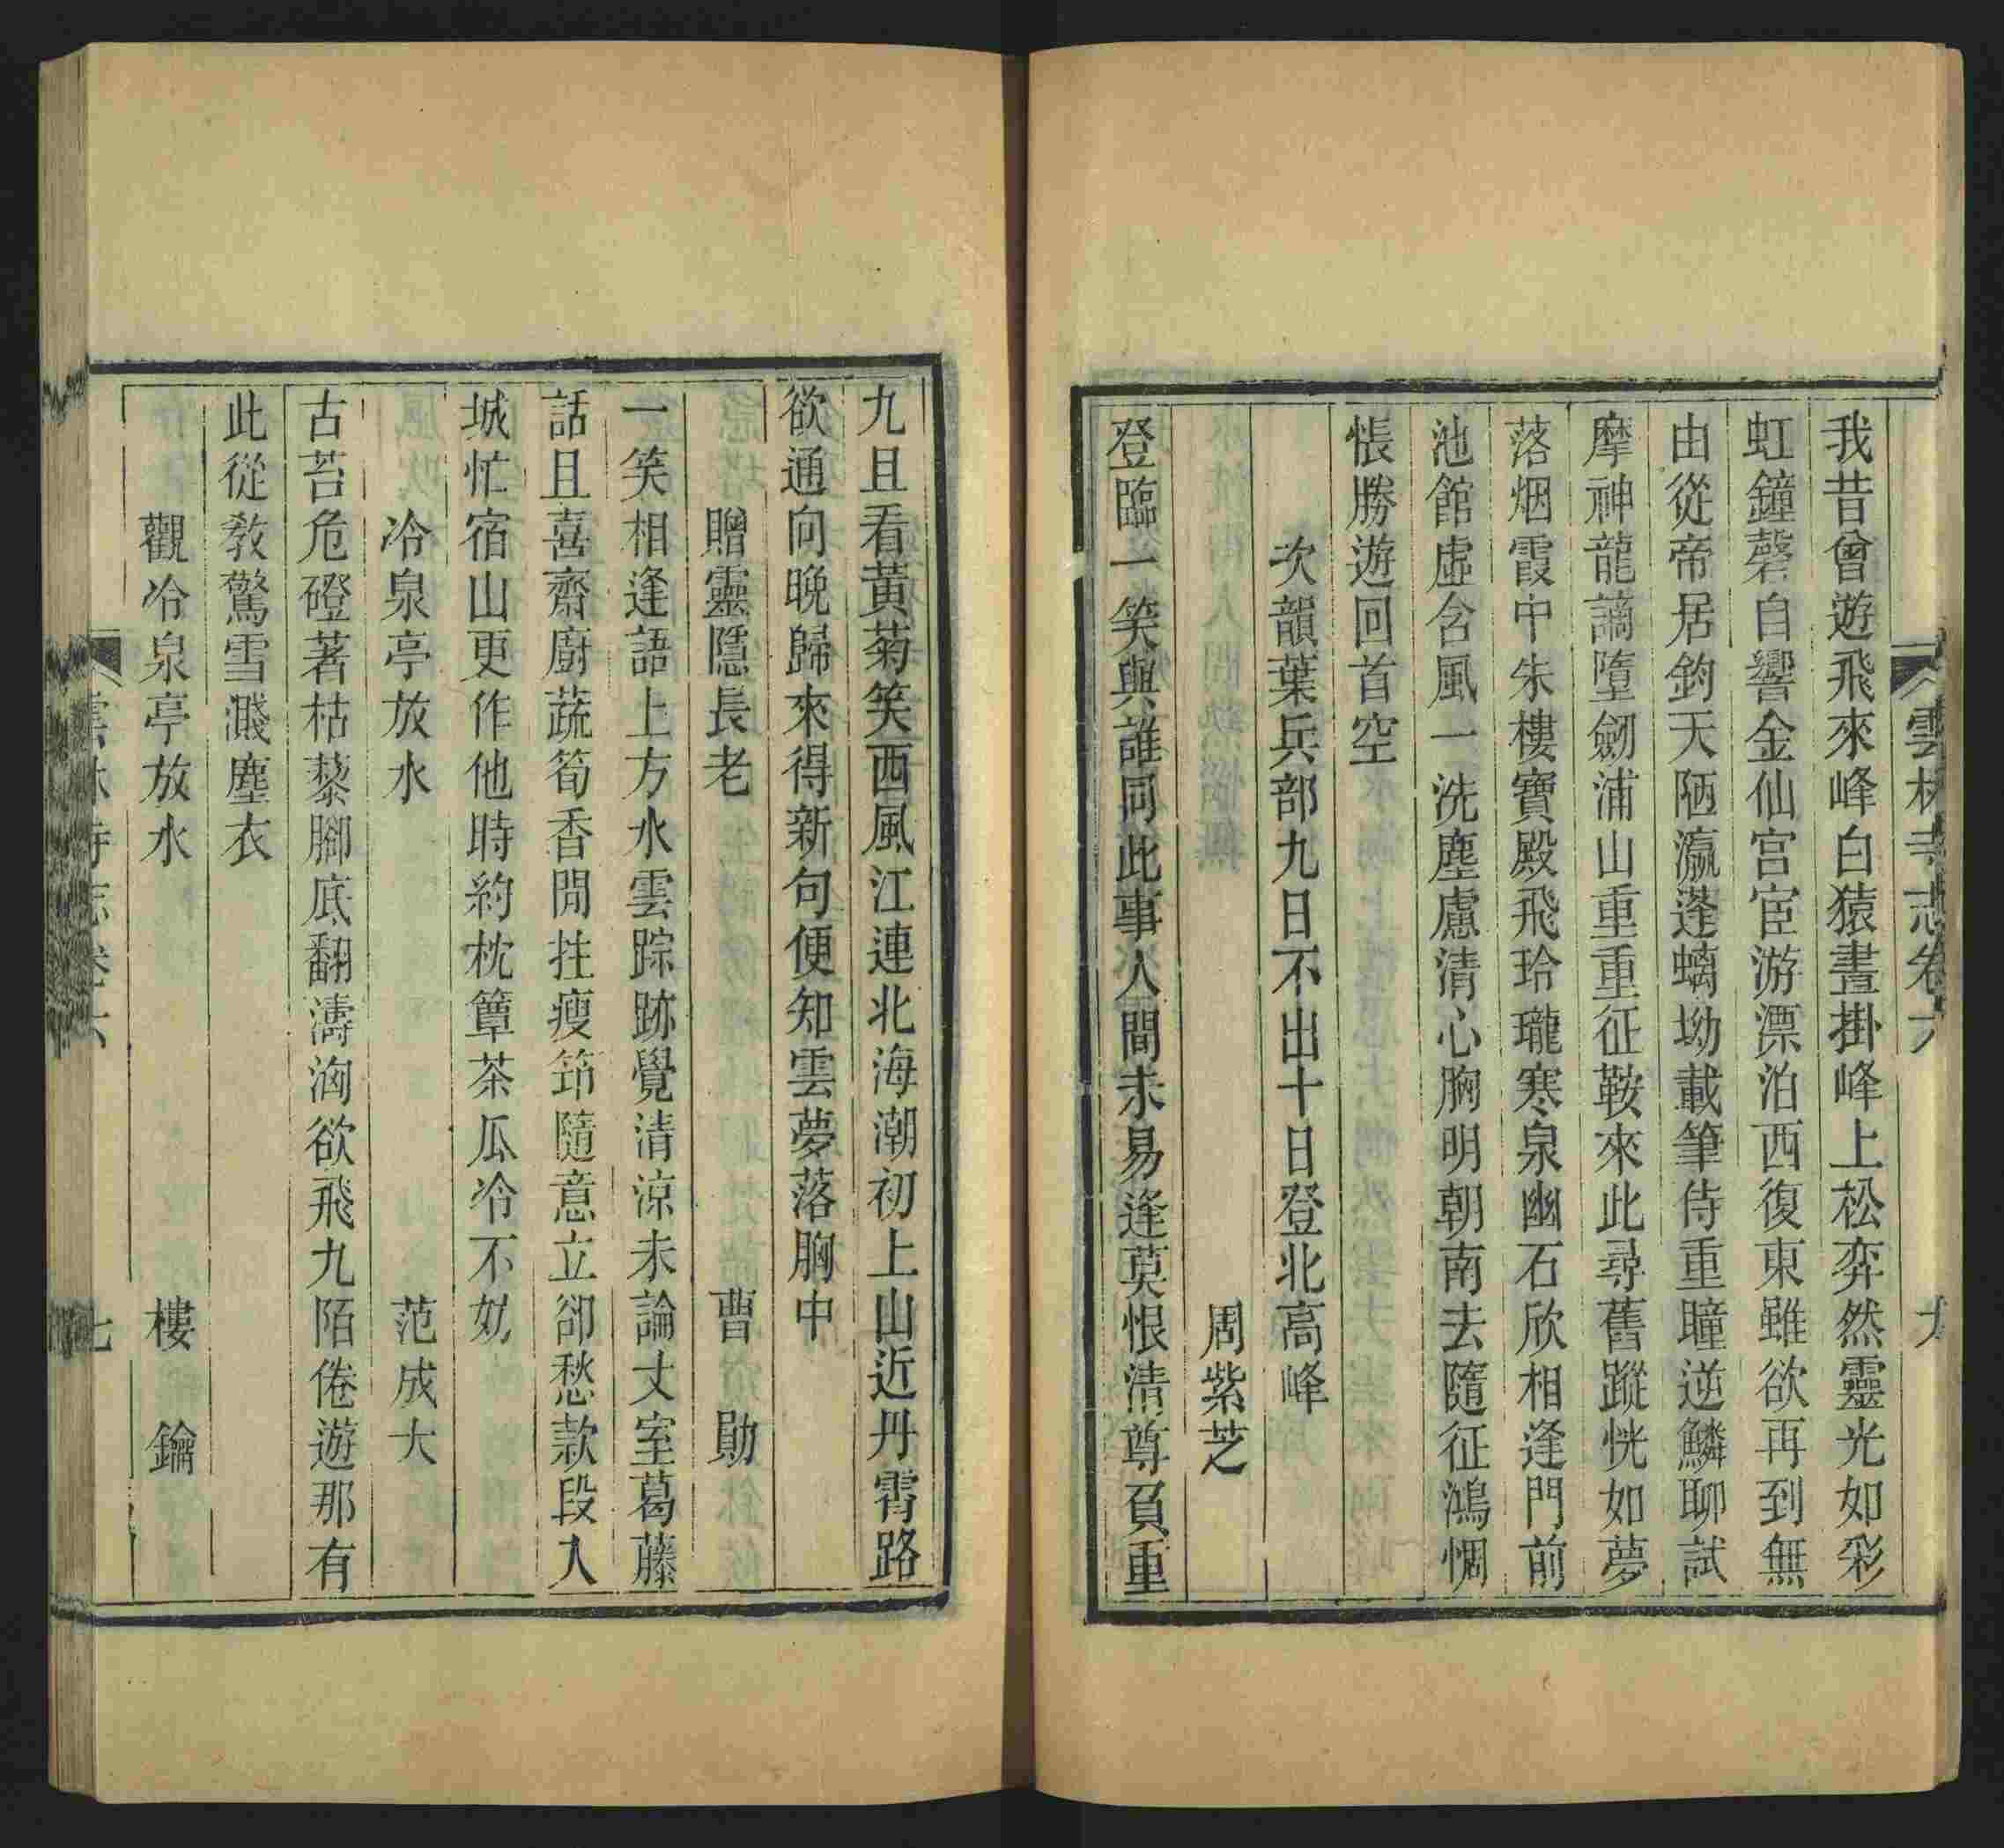 雲林寺志卷六
我昔曾遊飛來峰白猿晝掛峰上松弈然靈光如彩
虹鐘磬自響金仙宮宦游漂泊西復東雖欲再到無
由從帝居鈞天陋瀛蓬螭坳載筆侍重瞳逆鱗聊試
摩神龍謫墮劒浦山重重征鞍來此尋舊蹤恍如夢
落烟霞中朱樓寶殿飛玲瓏寒泉幽石欣相逢門前
池館虛含風一洗塵慮清心胸明朝南去隨征鴻惆
悵勝遊回首空
次韻葉兵部九日不出十日登北高峰
周紫芝
登臨一笑與誰同此事人間未易逢莫恨清尊負重
九且看黃菊笑西風江連北海潮初上山近丹霄路
欲通向晚歸來得新句便知雲夢落胸中
贈靈隱長老 曹勛
一笑相逢語上方水雲踪跡覺清涼未論丈室葛藤
話且喜齋廚蔬筍香閒拄瘦筇隨意立卻愁款段入
城忙宿山更作他時約枕簟茶瓜冷不妨
冷泉亭放水 范成大
古苔危磴著枯藜腳底翻濤洶欲飛九陌倦遊那有
此從敎驚雪濺塵衣
觀冷泉亭放水 樓鑰
雲林寺志卷六 七